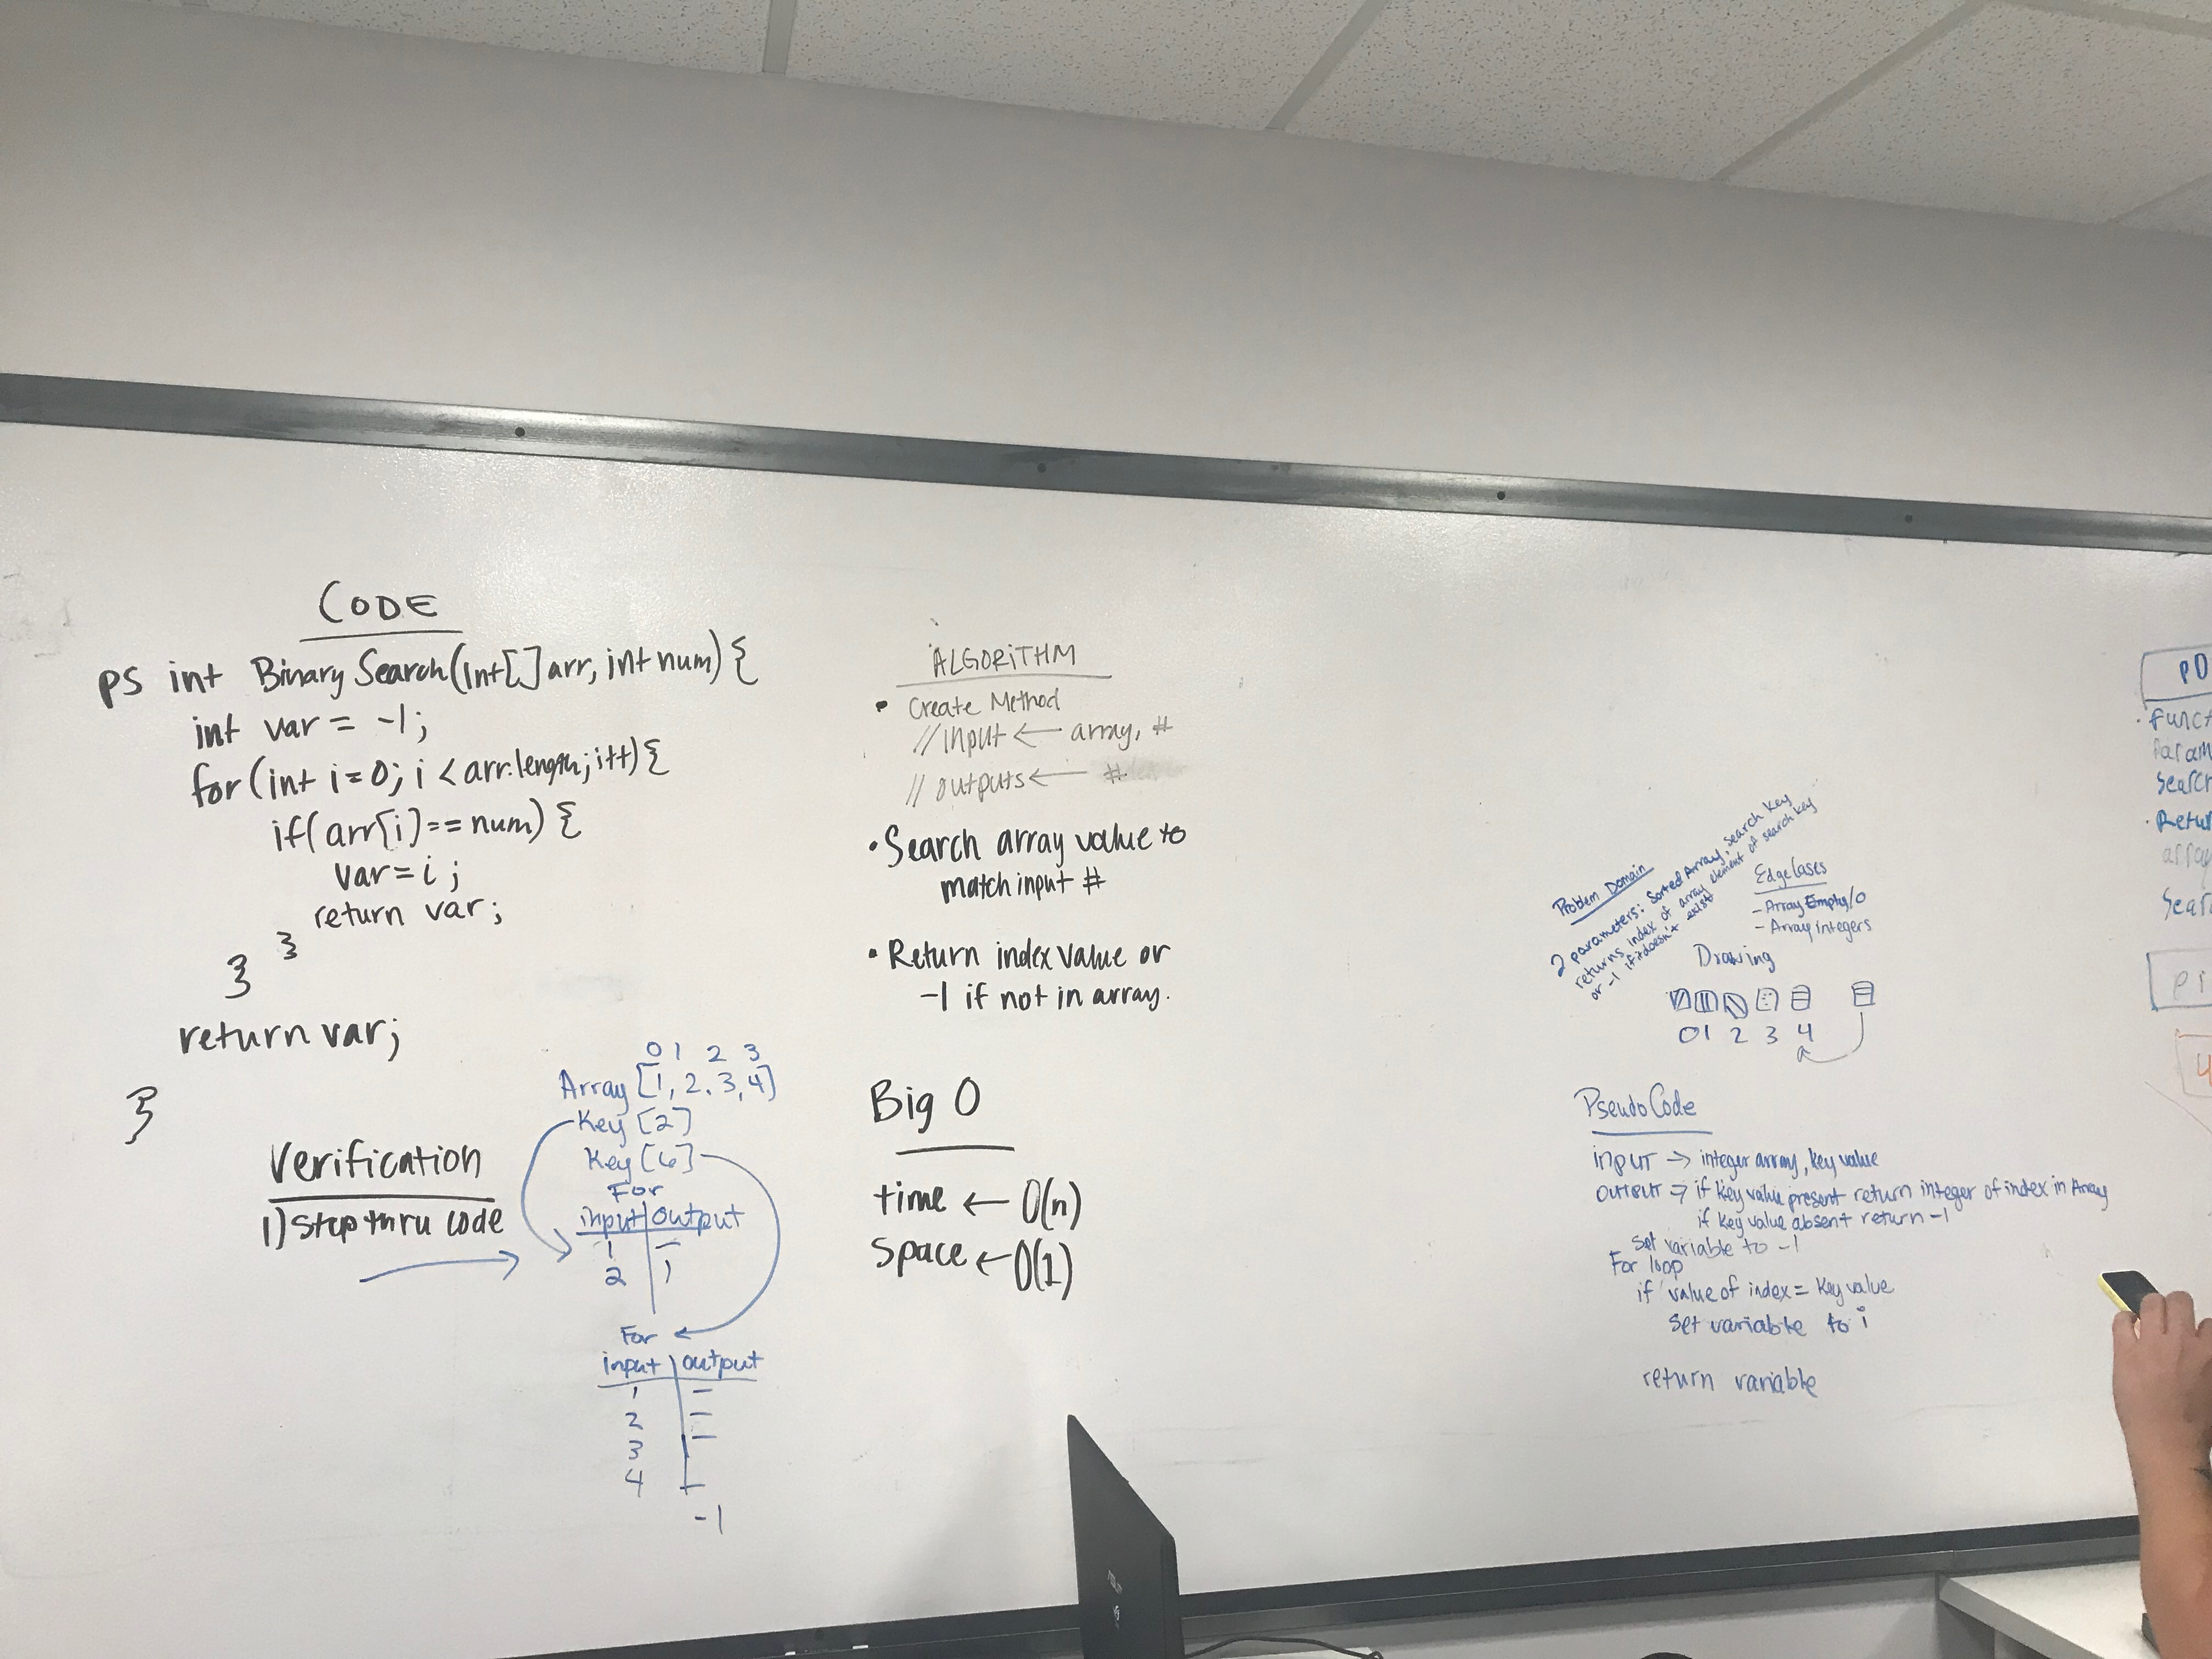 CODE
ps int Binary Search(int[] arr, int num) {
int var = -1;
for (int i = 0; i < arr.length; i++) {
if( arr[i] == num) {
var = i ;
return var;
}
}
return var;
}
Verification
1) Step thru code
0 1 2 3
Array [1, 2. 3, 4]
Key [2]
Key [6]
For
input | output
1 | —
2 | 1
For
input | output
1 —
2 —
3 —
4 —
-1
ALGORITHM
• Create Method
// input ← array, #
// outputs ← #
• Search array value to
match input #
• Return index value or
-1 if not in array.
Big O
time ← O(n)
Space ← O(1)
Problem Domain
2 parameters: Sorted Array, search key
returns index of array element of search key
or -1 if it doesn't exist
Edge Cases
- Array Empty/0
- Array integers
Drawing
0 1 2 3 4
PseudoCode
INPUT → integer array, key value
OUTPUT → if key value present return integer of index in Array
if key value absent return -1
Set variable to -1
For loop
if value of index = key value
Set variable to i
return variable
PD
• Funct
Param
Search
• Retur
array
Sear